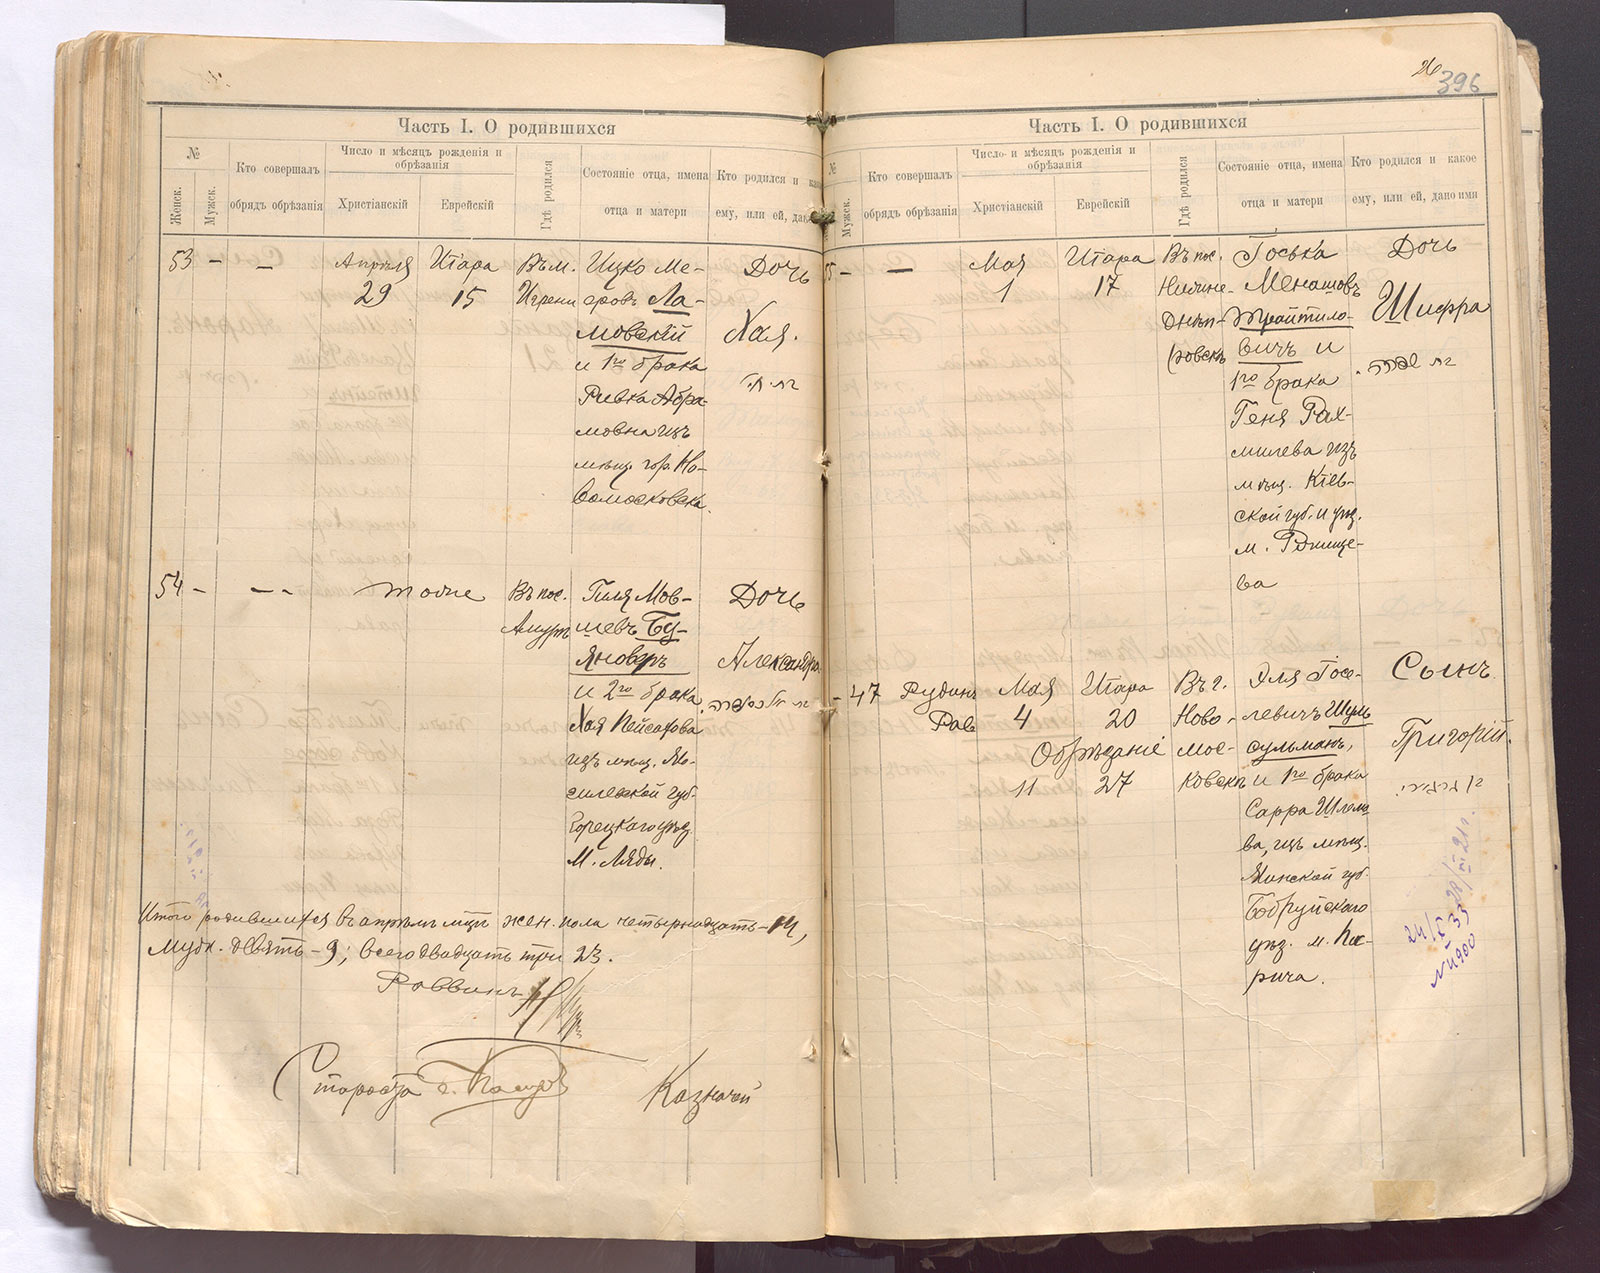 26
396
Часть I. О родившихся
№
Женск.
Мужск.
Кто совершалъ
обрядъ обрѣзанія
Число и мѣсяцъ рожденія и
обрѣзанія
Христіанскій
Еврейскій
Гдѣ родился
Состояніе отца, имена
отца и матери
Кто родился и
ему, или ей, дано
53 - -
Апрѣля
29
Иіара
15
Въ м.
Игрени
Ицко Ме-
еровъ Ла-
мовскій
и 1го брака
Ривка Абра-
мовна изъ
мѣщ. гор. Но-
вомосковска.
Дочь
Хая.
54 - - -
тоже
Въ пос.
Амуръ
Гиля Мов-
шевъ Бу-
яноверъ
и 2го брака
Хая Пейсахова
изъ мѣщ. Мо-
гилевской губ.
Горецкаго уѣзд.
м. Ляды.
Дочь
Александра
Итого родившихся въ апрѣлѣ мцѣ жен. пола четырнадцать - 14,
Мужск. девять - 9; всего двадцать три 23.
Раввинъ
Староста
Казначей
Часть I. О родившихся
№
Мужск.
Кто совершалъ
обрядъ обрѣзанія
Число и мѣсяцъ рожденія и
обрѣзанія
Христіанскій
Еврейскій
Гдѣ родился
Состояніе отца, имена
отца и матери
Кто родился и какое
ему, или ей, дано имя
55 - -
Мая
1
Иіара
17
Въ пос.
Нижне-
Днѣп-
ровскъ
Госька
Менашовъ
Трайтило-
вичъ и
1го брака
Геня Рах-
милева изъ
мѣщ. Кіев-
ской губ. и уѣзд.
м. Ржище-
ва
Дочь
Шифра
בת שפרה.
- 47
Рудинъ
Рав
Мая
4
Обрѣзаніе
11
Иіара
20
27
Въ г.
Ново-
мос-
ковскѣ
Эля Госе-
левичъ Шуль
сульманъ,
и 1го брака
Сарра Шлемо-
ва, изъ мѣщ.
Минской губ.
Бобруйскаго
уѣз. м. Па-
рича.
Сынъ
Григорій.
24/I 33
№ 4900